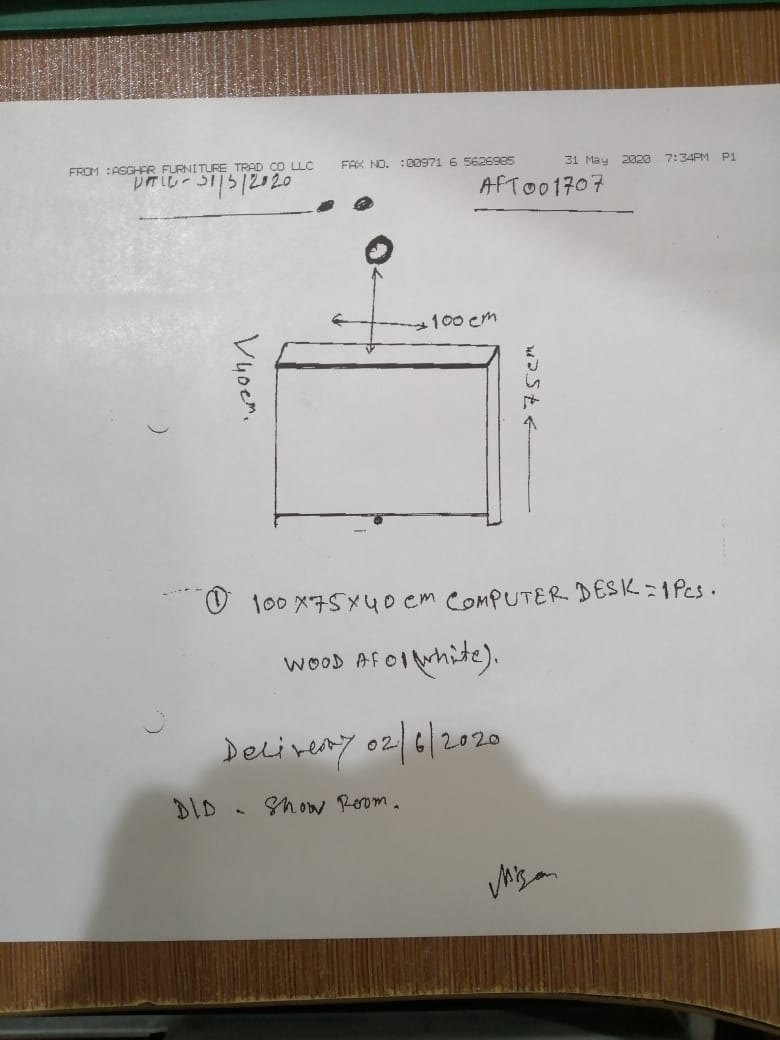 FROM :ASGHAR FURNITURE TRAD CO LLC FAX NO. :00971 6 5626985 31 May 2020 7:34PM P1
DATE - 31/5/2020 AFT001707
100 cm
V40cm.
75cm
① 100X75X40 cm COMPUTER DESK = 1Pcs.
WOOD AF01 (white).
Delivery 02/6/2020
D/D - Show Room.
Mizan